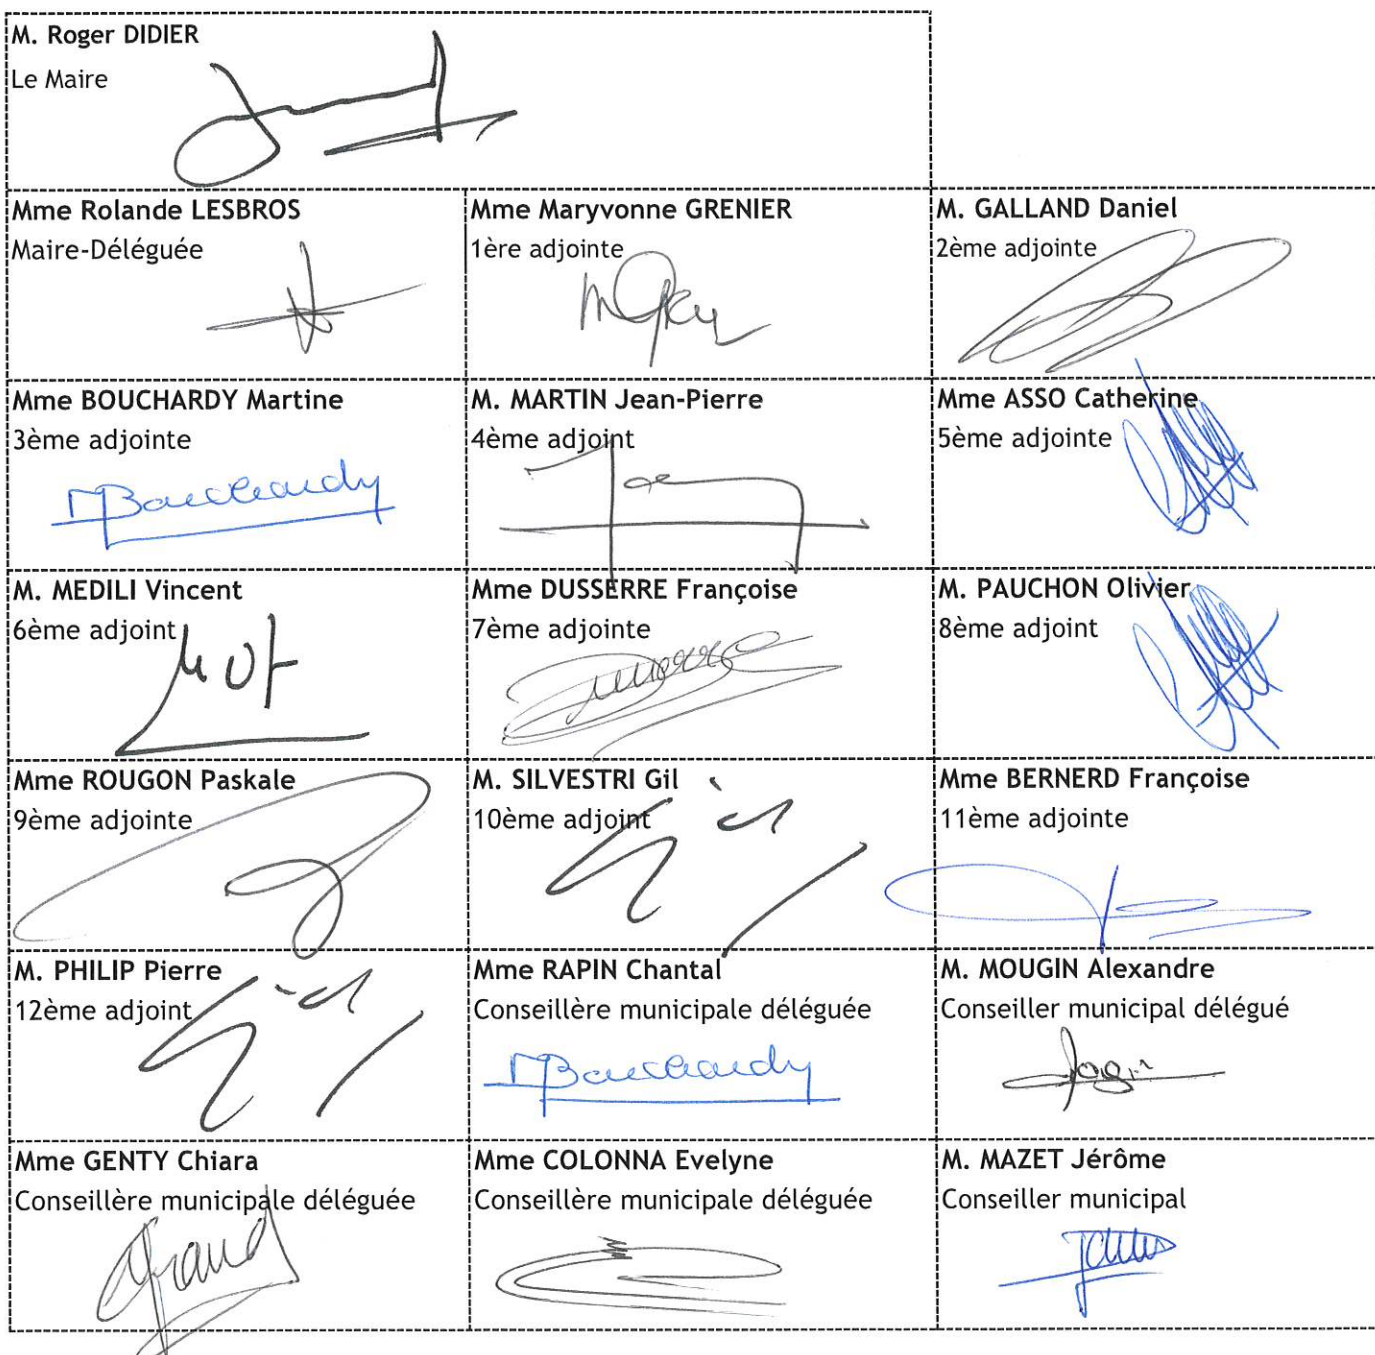 M. Roger DIDIER
Le Maire
Mme Rolande LESBROS
Maire-Déléguée
Mme Maryvonne GRENIER
1ère adjointe
M. GALLAND Daniel
2ème adjointe
Mme BOUCHARDY Martine
3ème adjointe
MBouchardy
M. MARTIN Jean-Pierre
4ème adjoint
Mme ASSO Catherine
5ème adjointe
M. MEDILI Vincent
6ème adjoint
Mme DUSSERRE Françoise
7ème adjointe
M. PAUCHON Olivier
8ème adjoint
Mme ROUGON Paskale
9ème adjointe
M. SILVESTRI Gil
10ème adjoint
Mme BERNERD Françoise
11ème adjointe
M. PHILIP Pierre
12ème adjoint
Mme RAPIN Chantal
Conseillère municipale déléguée
MBouchardy
M. MOUGIN Alexandre
Conseiller municipal délégué
Mme GENTY Chiara
Conseillère municipale déléguée
Mme COLONNA Evelyne
Conseillère municipale déléguée
M. MAZET Jérôme
Conseiller municipal